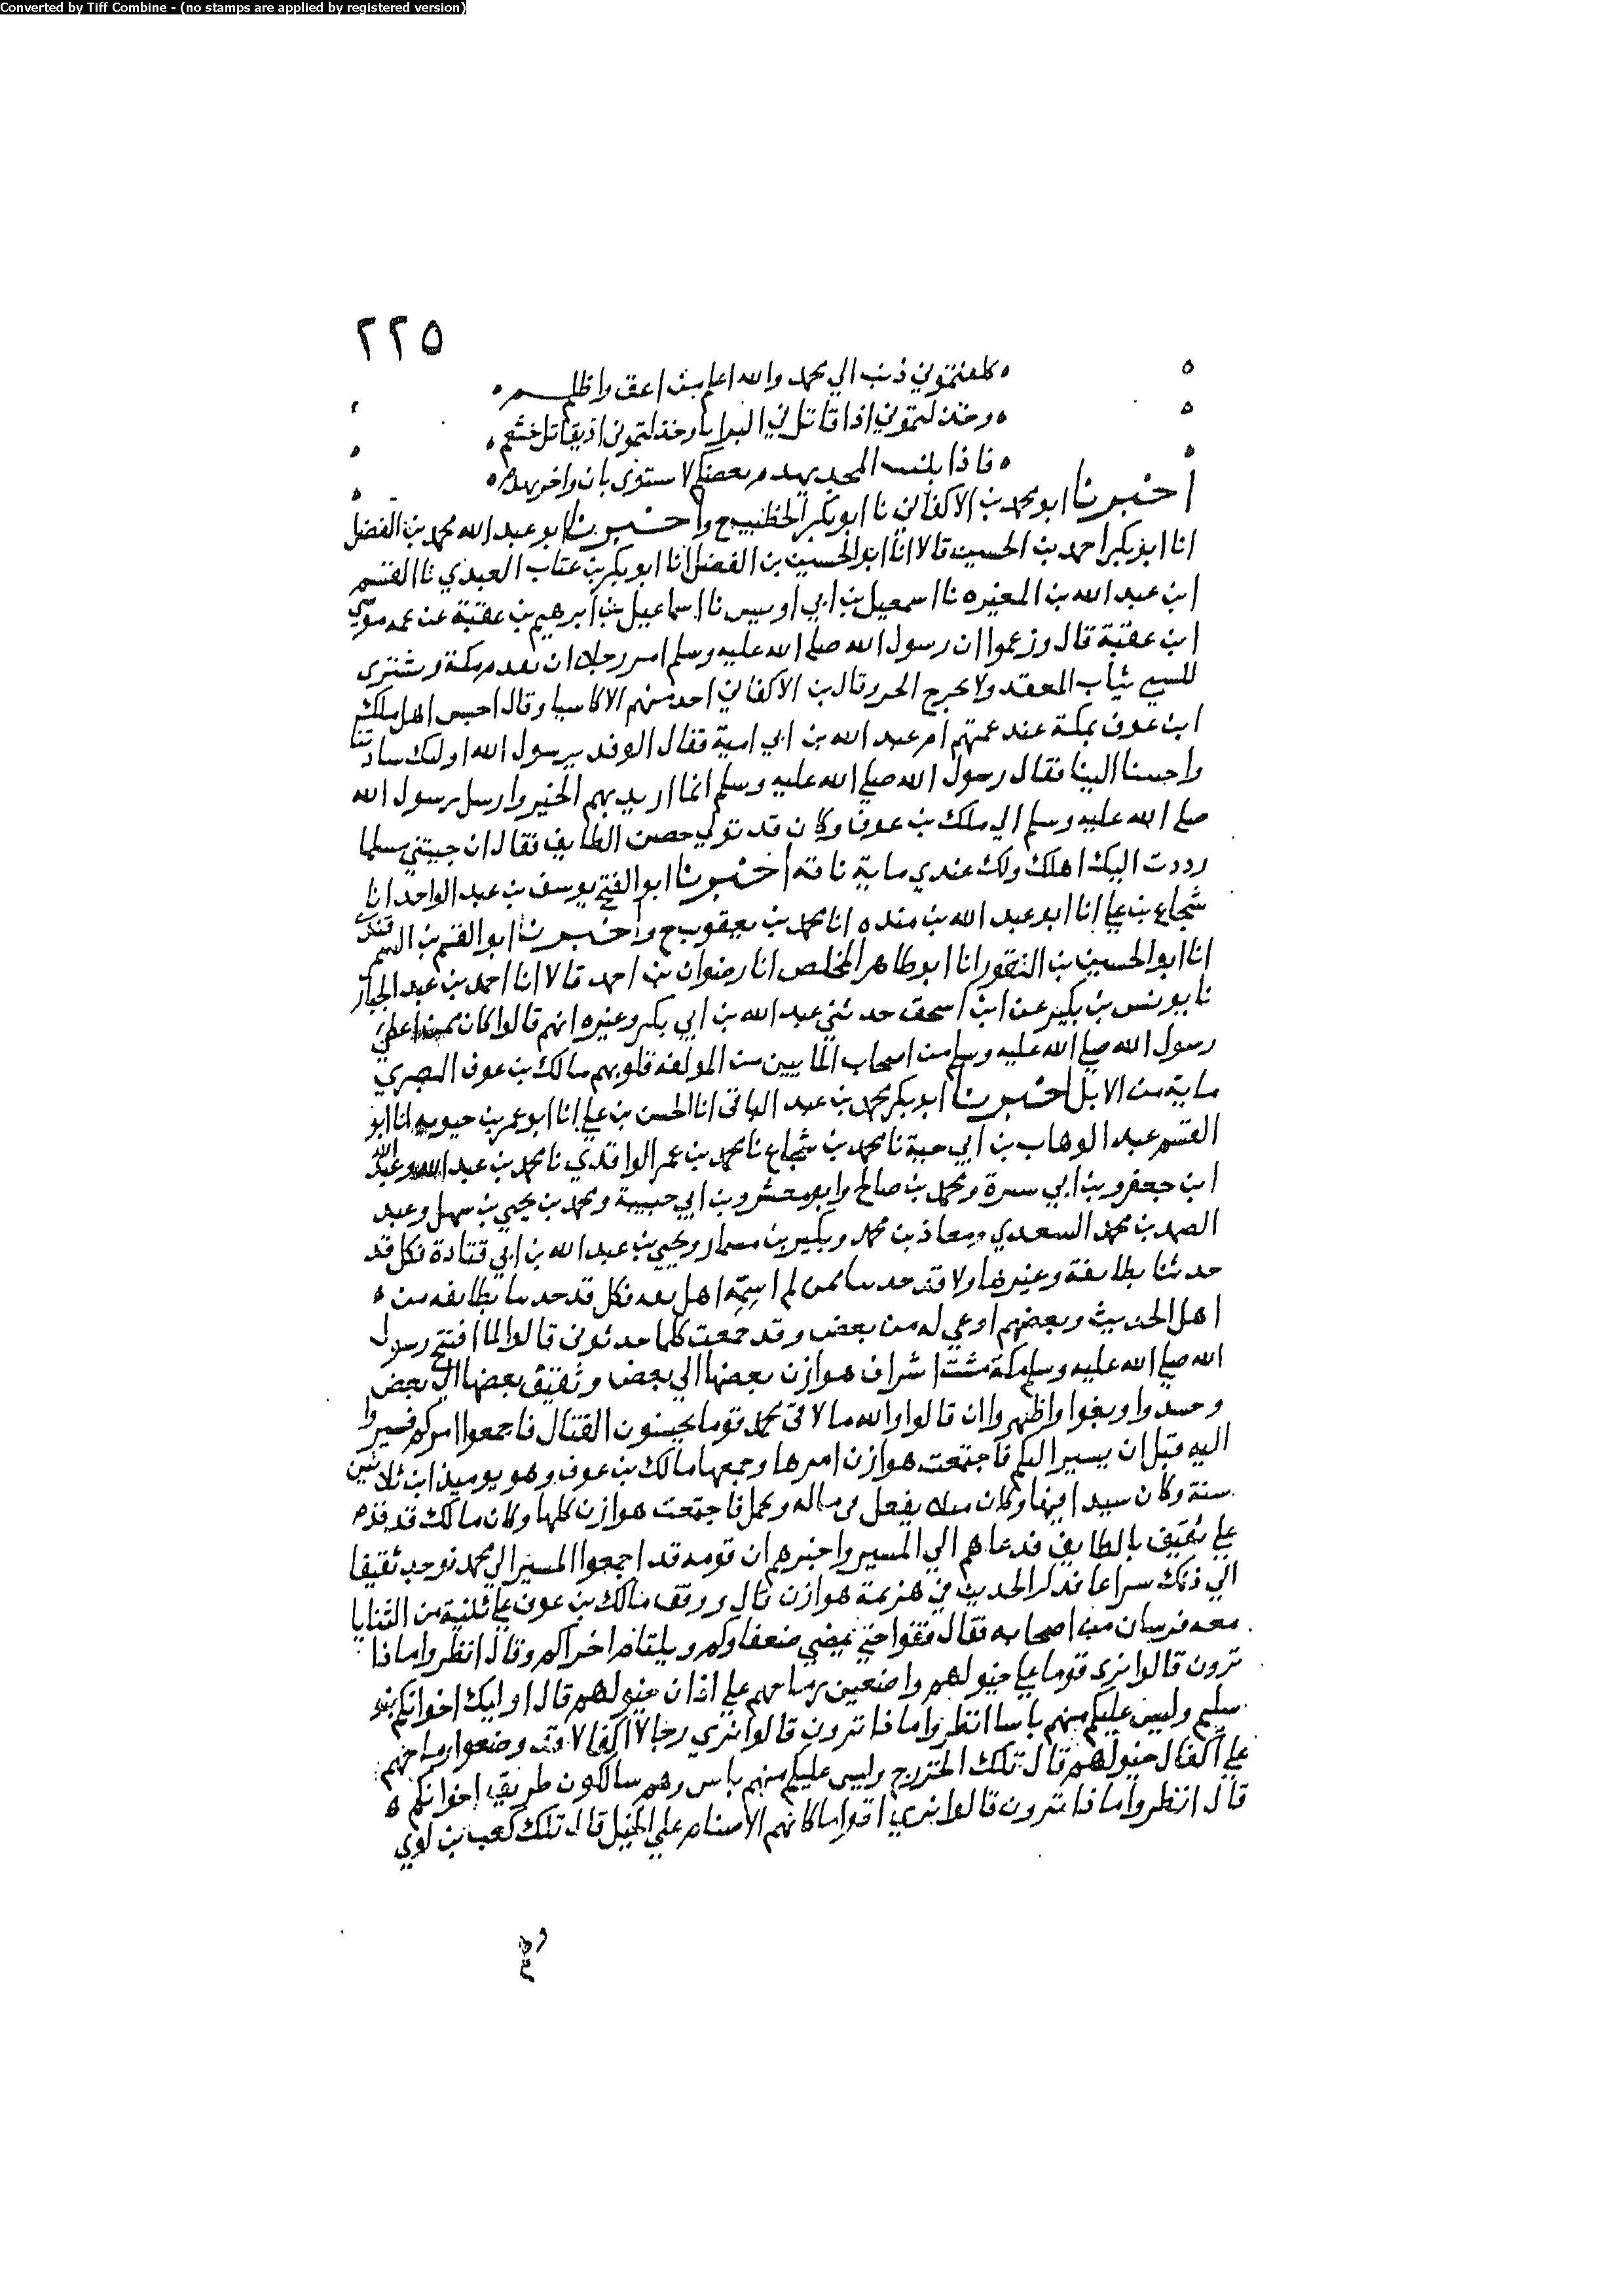 Converted by Tiff Combine - (no stamps are applied by registered version)
٢٢٥
كلفتموني ذنب الي محمد والله اعلم من اعق واظلم
وخذلتموني اذا قاتل في البرايا وخذلتموني اذ يقاتل خثعم
فاذا بنيت المجد يهدم بعضكم لا ستوى بان واخر يهدم
اخبرنا ابو محمد بن الاكفاني نا ابو بكر الخطيب ح واخبرنا ابو عبد الله محمد بن الفضل
انا ابو بكر احمد بن الحسين قالا انا ابو الحسين بن الفضل انا ابو بكر بن عتاب العبدي نا القسم
ابن عبد الله بن المغيره نا اسمعيل بن ابي اويس نا اسماعيل بن ابرهيم بن عقبة عن عمه موسي
ابن عقبة قال وزعموا ان رسول الله صلي الله عليه وسلم امر رجلا ان يقدم مكة ويشتري
للسبي ثياب المعقد ولا يخرج الحر وقال بن الاكفاني احد منهم الا كاسيا وقال احبس اهل ملك
ابن عوف بمكة عند عمتهم ام عبد الله بن ابي امية فقال الوفد يرسول الله اوليك سادتنا
واحبنا الينا فقال رسول الله صلي الله عليه وسلم انما اريد بهم الخير وارسل رسول الله
صلي الله عليه وسلم الي ملك بن عوف وكان قد تولي حصن الطايف فقال ان جيتني مسلما
رددت اليك اهلك ولك عندي ماية ناقة اخبرنا ابو الفتح يوسف بن عبد الواحد انا
شجاع بن علي انا ابو عبد الله بن منده انا محمد بن يعقوب ح واخبرنا ابو القسم بن السمرقندي
انا ابو الحسين بن النقور انا ابو طاهر المخلص انا رضوان بن احمد قالا انا احمد بن عبد الجبار
نا يونس بن بكير عن ابن اسحق حدثني عبد الله بن ابي بكر وغيره انهم قالوا كان ممن اعطي
رسول الله صلي الله عليه وسلم من اصحاب المايين من المولفة قلوبهم مالك بن عوف النصري
ماية من الابل اخبرنا ابو بكر محمد بن عبد الباقي انا الحسن بن علي انا ابو عمر بن حيويه انا ابو
القسم عبد الوهاب بن ابي حية نا محمد بن شجاع نا محمد بن عمر الواقدي نا محمد بن عبد الله وعبد الله
ابن جعفر وبن ابي سبرة ومحمد بن صالح وابو معشر وبن ابي حبيبة ومحمد بن يحيي بن سهل وعبد
الصمد بن محمد السعدي ومعاذ بن محمد وبكير بن مسمار ويحيي بن عبد الله بن ابي قتادة فكل قد
حدثنا بطايفة وغيرها ولا قد حدثنا ممن لم اسمه اهل ثقه فكل قد حدثنا بطايفه من
اهل الحديث وبعضهم اوعي له من بعض وقد جمعت كلما حدثوني قالوا لما افتتح رسول
الله صلي الله عليه وسلم مكة مشت اشراف هوازن بعضها الي بعض وثقيف بعضها الي بعض
وحسدوا وبغوا واظهروا ان قالوا والله ما لاقى محمد قوما يحسنون القتال فاجمعوا امركم فسيروا
اليه قبل ان يسير اليكم فاجتمعت هوازن امرها وجمعها مالك بن عوف وهو يوميذ ابن ثلاثين
سنة وكان سيدا فيها وكان مسبلا يفعل في ماله ويحمل فاجتمعت هوازن كلها وكان مالك قد قدم
علي ثقيف بالطايف فدعاهم الي المسير واخبرهم ان قومه قد اجمعوا المسير الي محمد فوجد ثقيفا
الي ذلك سراعا فذكر الحديث في هزيمة هوازن قال ووقف مالك بن عوف علي ثنية من الثنايا
معه فرسان من اصحابه فقال قفوا حتي يمضي ضعفاوكم ويلتام اخراكم وقال انظروا ماذا
ترون قالوا نرى قوما علي خيولهم واضعين رماحهم علي اذان خيولهم قال اوليك اخوانكم بنو
سليم وليس عليكم منهم باسا انظروا ماذا ترون قالوا نري رجالا اكفالا قد وضعوا رماحهم
علي اكفال خيولهم قال تلك الخزرج وليس عليكم منهم باس وهم سالكون طريق اخوانكم
قال انظروا ماذا ترون قالوا نري اقواما كانهم الاصنام علي الخيل قال تلك كعب بن لوي